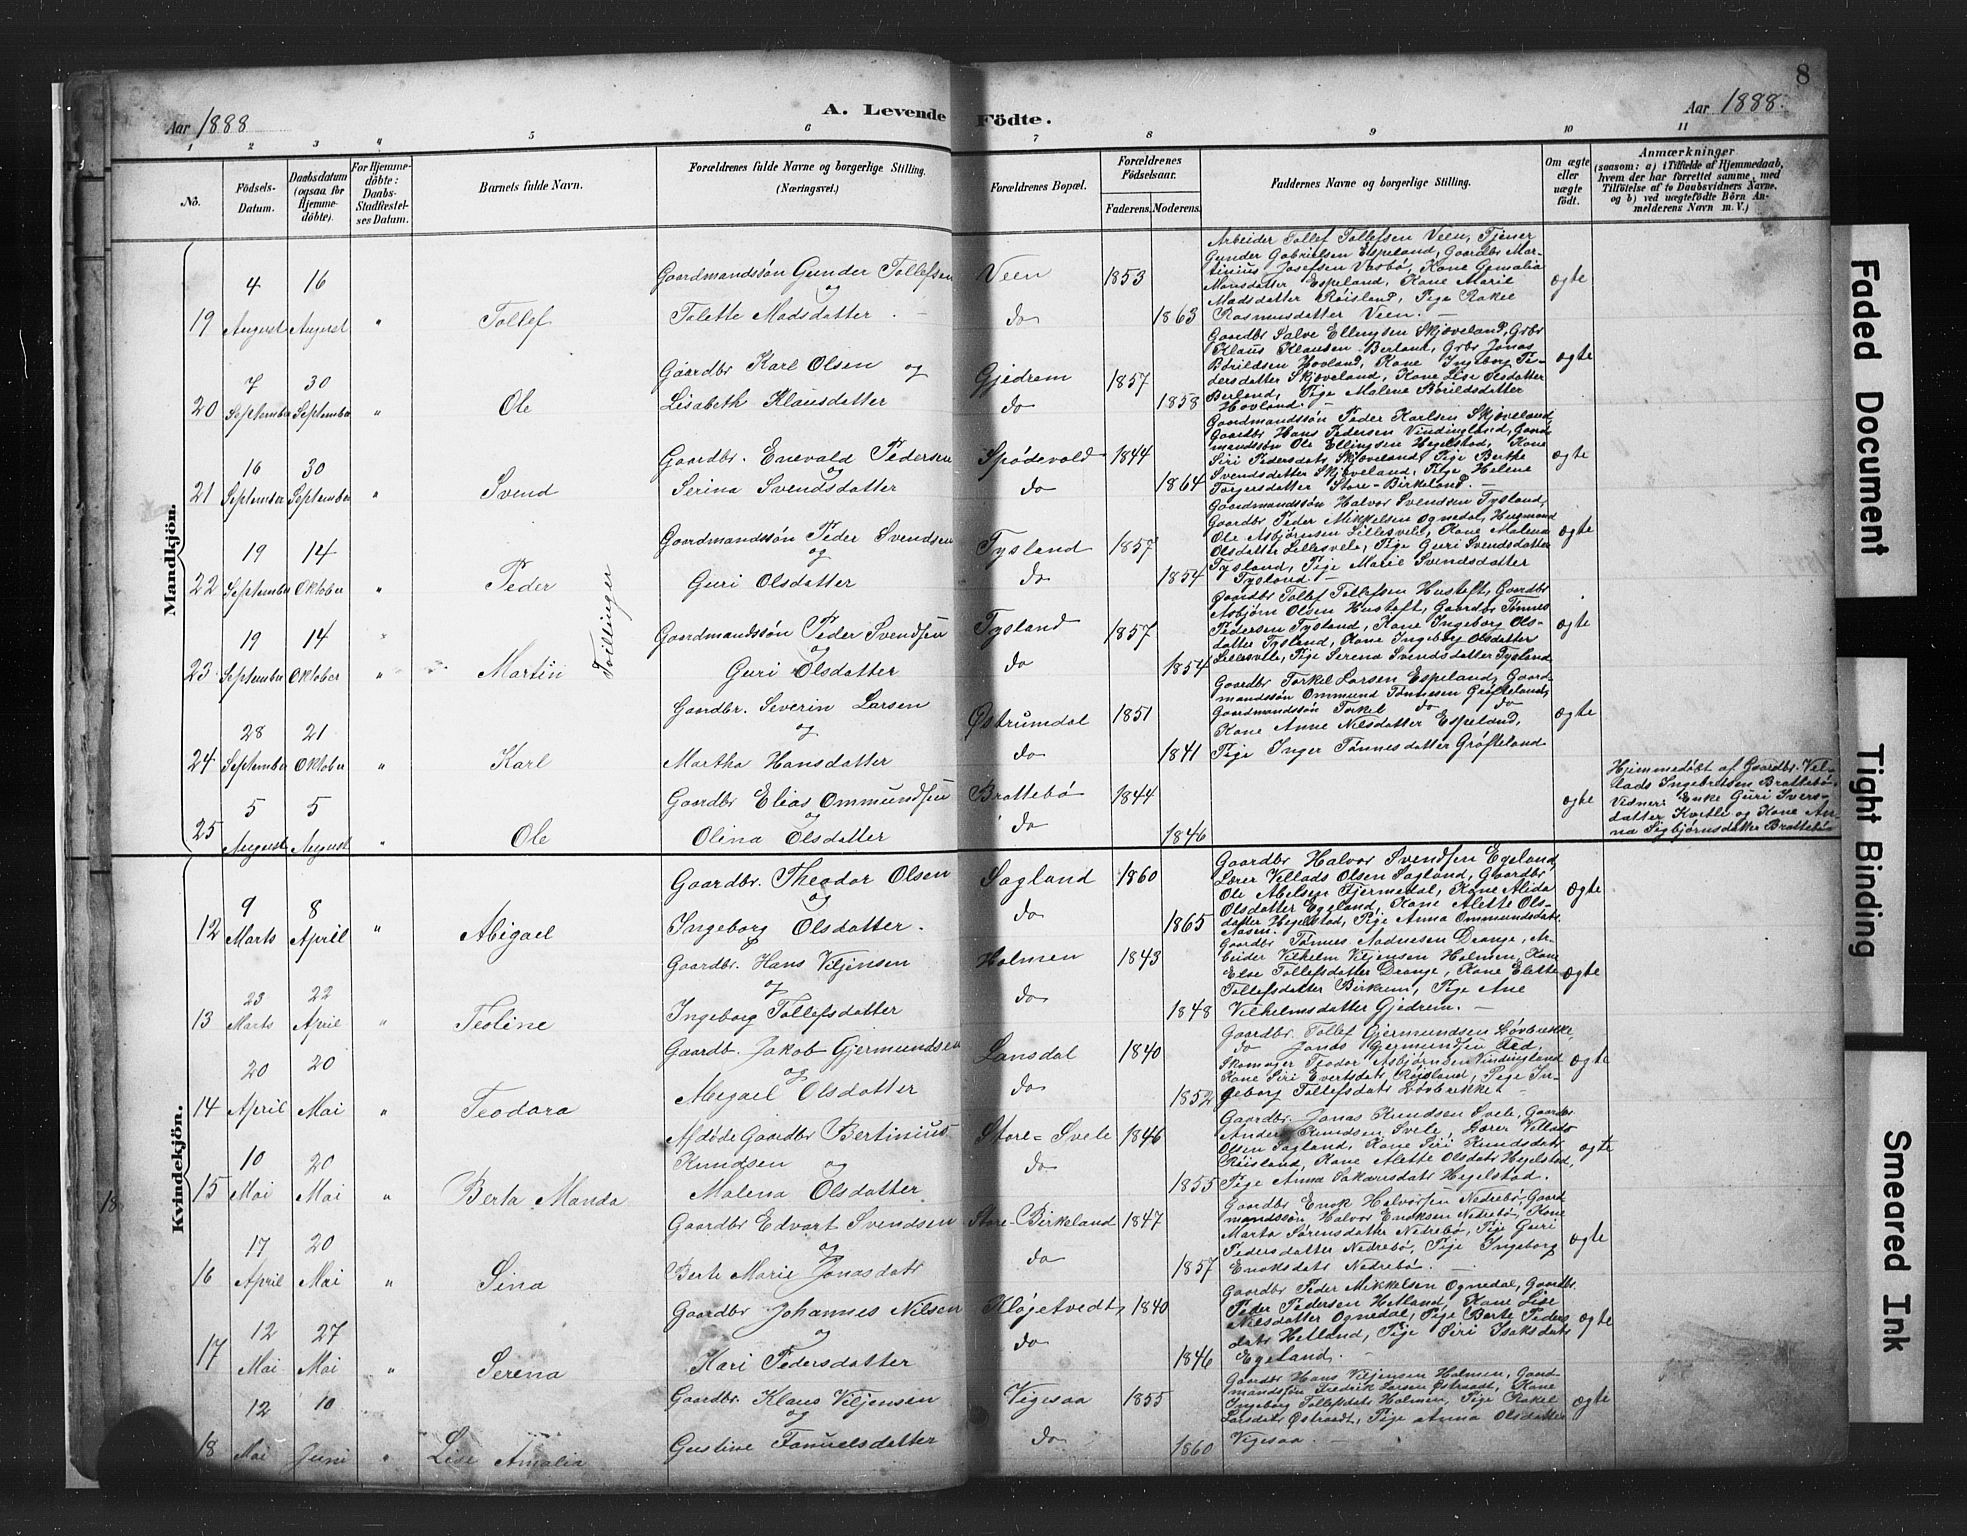 8
Aar 1888
A. Levende Födte.
Aar 1888.
1 2 3 4 5 6 7 8 9 10 11
No.
Födsels-
Datum.
Daabsdatum
(ogsaa for
Hjemme-
döbte).
For Hjemme-
döbte:
Daabs-
Stadfæstel-
ses Datum.
Barnets fulde Navn.
Forældrenes fulde Navne og borgerlige Stilling.
(Næringsvei.)
Forældrenes Bopæl.
Forældrenes
Födselsaar.
Faderens. Moderens.
Faddernes Navne og borgerlige Stilling.
Om ægte
eller
uægte
födt.
Anmærkninger
(saasom: a) i Tilfælde af Hjemmedaab,
hvem der har forrettet samme, med
Tilföielse af to Daabsvidners Navne,
og b) ved uægtefödte Börn An-
melderens Navn m. V.)
Mandkjön.
19
4 August
16 August
"
Tollef
Gaardmandssøn Gunder Tollefsen
og
Tolette Madsdatter
Veen
do
1853
1863
Arbeider Tollef Tollefsen Veen, Tjener
Gunder Gabrielsen Espeland, Gaardbr Mar-
tinius Josefsen Vasbø, Kone Gemalia
Monsdatter Espeland, Kone Marie
Madsdatter Røisland, Pige Rakel
Rasmusdatter Veen.
ægte
20
7 September
30 September
"
Ole
Gaardbr Karl Olsen og
Lisabeth Klausdatter
Gjedrem
do
1857
1858
Gaardbr Salve Ellingsen Skjæveland, Grbr
Klaus Klausen Berland, Grbr Jonas
Børildsen Hovland, Kone Ingeborg Pe-
dersdatter Skjæveland, Kone Lise
Berland, Pige Malene Børildsdatter
Hovland.
ægte
21
16 September
30 September
"
Svend
Gaardbr. Enevald Pedersen
og
Serina Svendsdatter
Spødevold
do
1844
1864
Gaardmandssøn Peder Karlsen Skjæveland
Gaardbr Hans Pedersen Vindingland, Gaard-
mandssøn Ole Ellingsen Hegelstad, Kone
Siri Pedersdatr Skjæveland, Pige Berthe
Svendsdatter Skjæveland, Pige Helene
Torgersdatter Store-Birkeland.
ægte
22
19 September
14 Oktober
"
Peder
Tvillinger
Gaardmandssøn Peder Svendsen
og
Guri Olsdatter
Tysland
do
1857
1854
Gaardmandssøn Halvor Svendsen Tysland,
Gaardbr Peder Mikkelsen Ognedal, Husmand
Ole Asbjørnsen Lillesvele, Kone Malena
Olsdatter Lillesvele, Pige Guri Svendsdatter
Tysland, Pige Marie Svendsdatter
Tysland
ægte
23
19 September
14 Oktober
"
Martin
Gaardmandssøn Peder Svendsen
og
Guri Olsdatter
Tysland
do
1857
1854
Gaardbr Tollef Tollefsen Hustoft, Gaardbr
Asbjørn Olsen Hustoft, Gaardbr Tønnes
Pedersen Tysland, Kone Ingeborg Ols-
datter Tysland, Kone Ingeborg Olsdatter
Lillesvele, Pige Serena Svendsdatter Tysland
ægte
24
28 September
21 Oktober
"
Karl
Gaardbr. Severin Larsen
og
Martha Hansdatter
Østrumdal
do
1851
1841
Gaardbr Torkel Larsen Espeland, Gaard-
mandssøn Ommund Tønnesen Grøfteland,
Gaardmandssøn Torkel do do
Kone Anne Nilsdatter Espeland,
Pige Inger Tønnesdatter Grøfteland
ægte
25
5 August
5 August
"
Ole
Gaardbr Elias Ommundsen
og
Olina Olsdatter
Brattebø
do
1844
1846
ægte
Hjemmedøbt af Gaardbr. Vel-
lads Ingebretsen Brattebø.
Vidner: Enke Guri Ivers-
datter Kvitle og Kone An-
na Sigbjørnsdatter Brattebø
Kvindekjön.
12
9 Marts
8 April
"
Abigael
Gaardbr. Theodor Olsen
og
Ingeborg Olsdatter.
Sagland
do
1860
1865
Gaardbr Halvor Svendsen Egeland,
Lærer Villads Olsen Sagland, Gaardbr
Ole Abelsen Fjermedal, Kone Alida
Olsdatter Egeland, Kone Alette Ols-
datter Hegelstad, Pige Anna Ommundsdatr
Aasen.
ægte
13
23 Marts
22 April
"
Teoline
Gaardbr. Hans Viljensen
og
Ingeborg Tollefsdatter
Holmen
do
1843
1848
Gaardbr Tønnes Aadnesen Drange, Ar-
beider Vilhelm Viljensen Holmen, Kone
Else Tollefsdatter Drange, Kone Elette
Tollefsdatter Birkem, Pige Ane
Vilhelmsdatter Gjedrem.
ægte
14
20 April
20 Mai
"
Teodora
Gaardb. Jakob Gjermundsen
og
Abigael Olsdatter
Lansdal
do
1840
1852
Gaardbr. Tollef Gjermundsen Løvbrekke,
do Jonas Gjermundsen Fed,
Skomager Teodor Asbjørnsen Vindingland
Kone Siri Evertsdatr Røisland, Pige In-
geborg Tollefsdatr Løvbrekke
ægte
15
10 Mai
20 Mai
"
Berta Manda
Afdøde Gaardbr Bertinius
Knudsen og
Malena Olsdatter
Store-Svele
do
1846
1855
Gaardbr. Jonas Knudsen Svele, Gaardbr
Anders Knudsen Svele, Lærer Villads
Olsen Sagland, Kone Siri Knudsdatr
Røisland, Kone Alette Olsdatr Hegelstad,
Pige Anna Sakariasdatr Hegelstad.
ægte
16
17 April
20 Mai
"
Sina
Gaardbr Edvart Svendsen
og
Berte Marie Jonasdatr
Store-Birkeland
do
1847
1857
Gaardbr Enok Halvorsen Nedrebø, Gaard-
mandssøn Halvor Enoksen Nedrebø, Kone
Marta Sørensdatter Nedrebø, Pige Guri
Pedersdatter Nedrebø, Pige Ingeborg
Enoksdatr Nedrebø.
ægte
17
12 Mai
27 Mai
"
Serena
Gaardbr Johannes Nilsen
og
Kari Pedersdatter
Kløgetvedt
do
1840
1846
Gaardbr Peder Mikkelsen Ognedal, Gaardbr.
Peder Pedersen Hetland, Kone Lise
Nilsdatter Ognedal, Pige Berte Peders
datr Hetland, Pige Siri Isaksdatr
Egeland.
ægte
18
12 Mai
10 Juni
"
Lise Amalia
Gaardbr. Klaus Viljensen
og
Gustine Fanuelsdatter
Vigesaa
do
1855
1860
Gaardbr Hans Viljensen Holmen, Gaard-
mandssøn Fredrik Larsen Østraadt, Kone
Ingeborg Tollefsdatr Holmen, Pige Rakel
Larsdatr Østraadt, Pige Anna Olsdatter
Vigesaa
ægte
18
Faded Document
Tight Binding
Smeared Ink